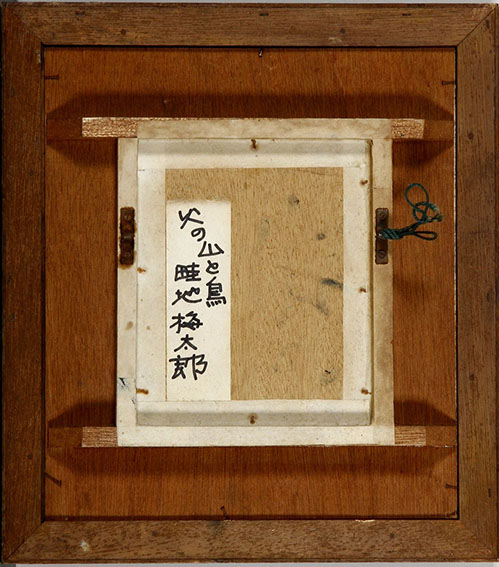 火の山と鳥
畦地梅太郎